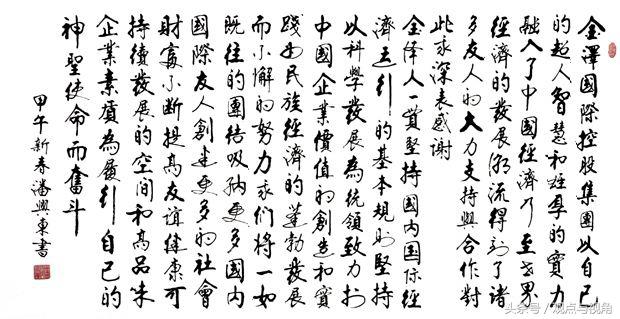 金澤國際控股集團以自己
的超人智慧和雄厚的實力
融入了中國經濟乃至世界
經濟的發展潮流得到了諸
多友人的大力支持與合作對
此表深表感謝
金泽人一貫堅持國内国际經
濟互引的基本規则堅持
以科學發展為統領致力於
中國企業價值的創造和實
踐为民族經濟的蓬勃發展
而不懈的努力我们將一如
既往的團结吸纳更多國内
國際友人創建更多的社會
財富不断提高友谊健康可
持續發展的空间和高品味
企業素質為履行自己的
神聖使命而奮斗
甲午新春潘興東書
头条号/观点与视角